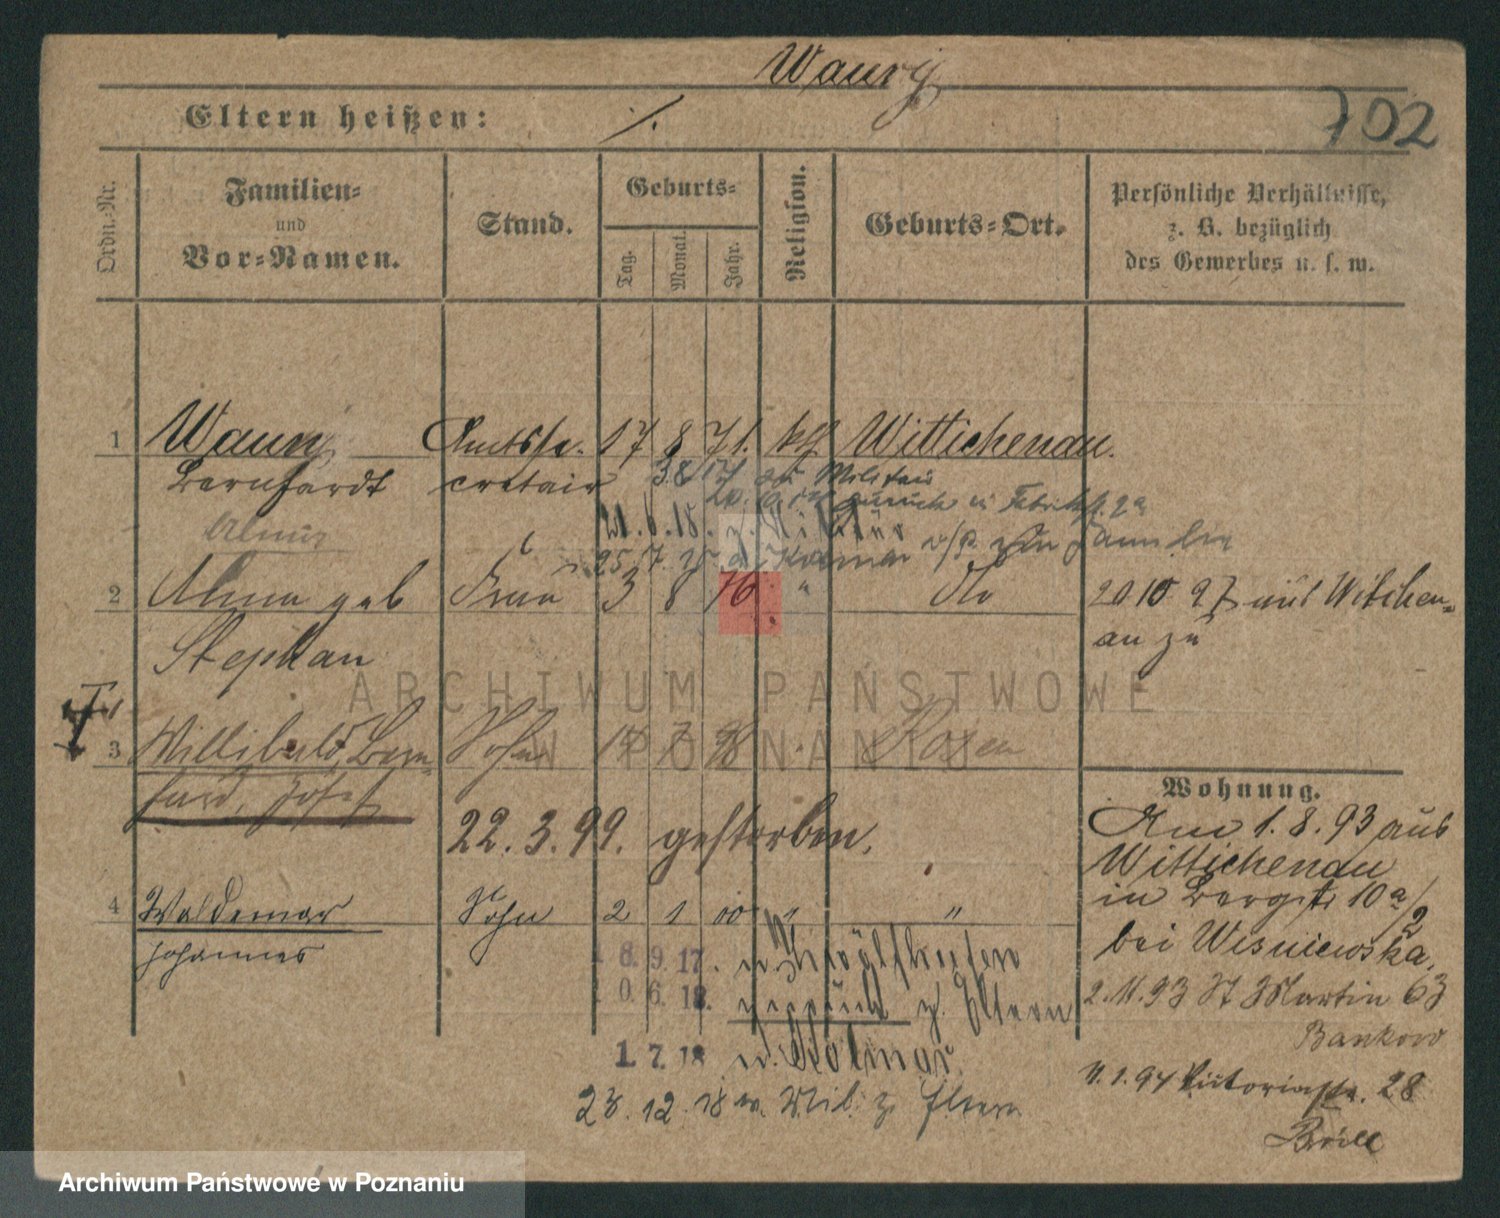 Waury
702
Eltern heißen: ./.
Ordn.-Nr.
Familien-
und
Vor-Namen.
Stand.
Geburts-
Tag.
Monat.
Jahr.
Religion.
Geburts-Ort.
Persönliche Verhältnisse,
z. B. bezüglich
des Gewerbes u. s. w.
1 Waury Amtsse- 17 8 71. kth Wittichenau.
Bernhardt cretair
3.8.17 zu Militair
zurück
21.6.18. z. Militär
25.7.18
2 Alma geb Frau 3 8 76 " do
Stephan
20 10 97 aus Wittichen-
au zu
3 Willibald, Bern- Sohn 14 7 98 Posen
hard, Josef
22.3.99. gestorben.
4 Waldemar Sohn 2 1 00 " "
Johannes
18.9.17. n.
10.6.18. zurück z. Eltern
1.7.18 n. Kolmar.
23.12.18 v. Mil. z. Eltern
Wohnung.
Am 1.8.93 aus
Wittichenau
in Bergstr 10a/2
bei Wisniewska,
2.11.93 St Martin 63
Bankow
11.1.94 Victoriastr. 28
Brill
ARCHIWUM PAŃSTWOWE
W POZNANIU
Archiwum Państwowe w Poznaniu